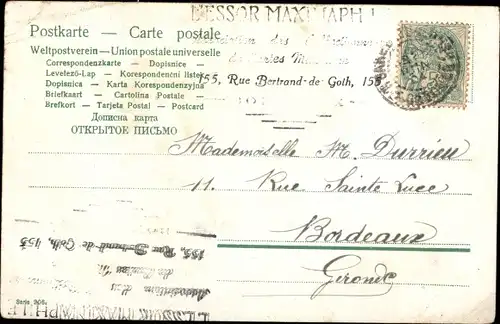 L'ESSOR MAXIMAPHILE
Postkarte - Carte postale
Weltpostverein — Union postale universelle
Correspondenzkarte - Dopisnice -
Levelező-Lap - Korespondenční lístek
Dopisnica - Karta Korespondenzyjna
Briefkaart - Cartolina Postale -
Brefkort - Tarjeta Postal - Postcard
Дописна карта
ОТКРЫТОЕ ПИСЬМО
155, Rue Bertrand-de Goth, 155
Mademoiselle M. Durrieu
11. Rue Sainte Luce
Bordeaux
Gironde
155, Rue Bertrand de Goth, 155
L'ESSOR MAXIMAPHILE